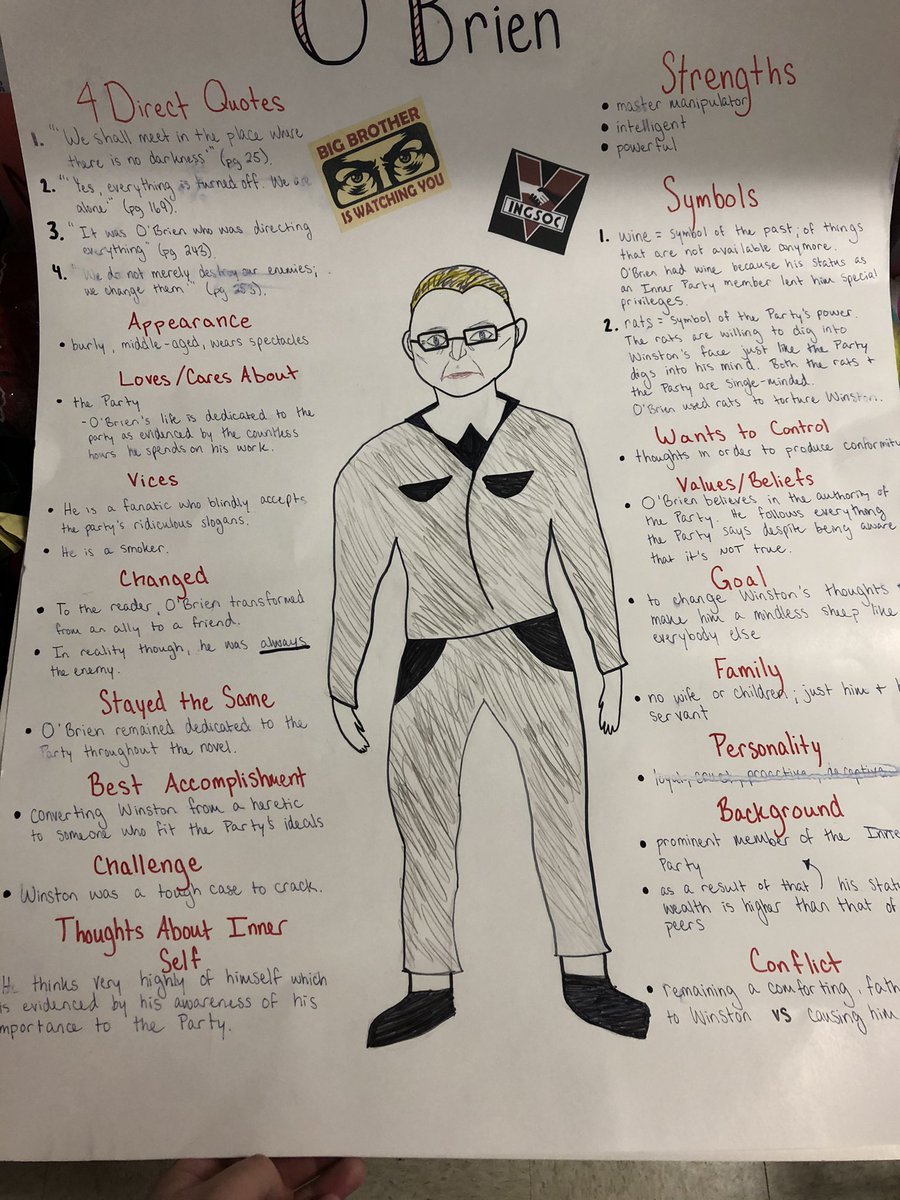 O'Brien
4 Direct Quotes
1. "'We shall meet in the place where
there is no darkness'" (pg 25).
2. "'Yes, everything is turned off. We are
alone'" (pg 169).
3. "It was O'Brien who was directing
everything" (pg 243).
4. "We do not merely destroy our enemies;
we change them" (pg 253).
Appearance
• burly, middle-aged, wears spectacles
Loves/Cares About
• the Party
- O'Brien's life is dedicated to the
party as evidenced by the countless
hours he spends on his work.
Vices
• He is a fanatic who blindly accepts
the party's ridiculous slogans.
• He is a smoker.
Changed
• To the reader, O'Brien transformed
from an ally to a friend.
• In reality though, he was always
the enemy.
Stayed the Same
• O'Brien remained dedicated to the
Party throughout the novel.
Best Accomplishment
• converting Winston from a heretic
to someone who fit the Party's ideals
Challenge
• Winston was a tough case to crack.
Thoughts About Inner
Self
He thinks very highly of himself which
is evidenced by his awareness of his
importance to the Party.
BIG BROTHER
IS WATCHING YOU
V
INGSOC
Strengths
• master manipulator
• intelligent
• powerful
Symbols
1. wine = symbol of the past; of things
that are not available anymore.
O'Brien had wine because his status as
an Inner Party member lent him special
privileges.
2. rats = symbol of the Party's power.
The rats are willing to dig into
Winston's face just like the Party
digs into his mind. Both the rats +
the Party are single-minded.
O'Brien used rats to torture Winston.
Wants to Control
• thoughts in order to produce conformity
Values/Beliefs
• O'Brien believes in the authority of
the Party. He follows everything
the Party says despite being aware
that it's NOT true.
Goal
• to change Winston's thoughts +
make him a mindless sheep like
everybody else
Family
• no wife or children; just him +
servant
Personality
• loyal, cruel, proactive, deceptive
Background
• prominent member of the Inner
Party
• as a result of that, his
wealth is higher than that of
peers
Conflict
• remaining a comforting,
to Winston vs causing him